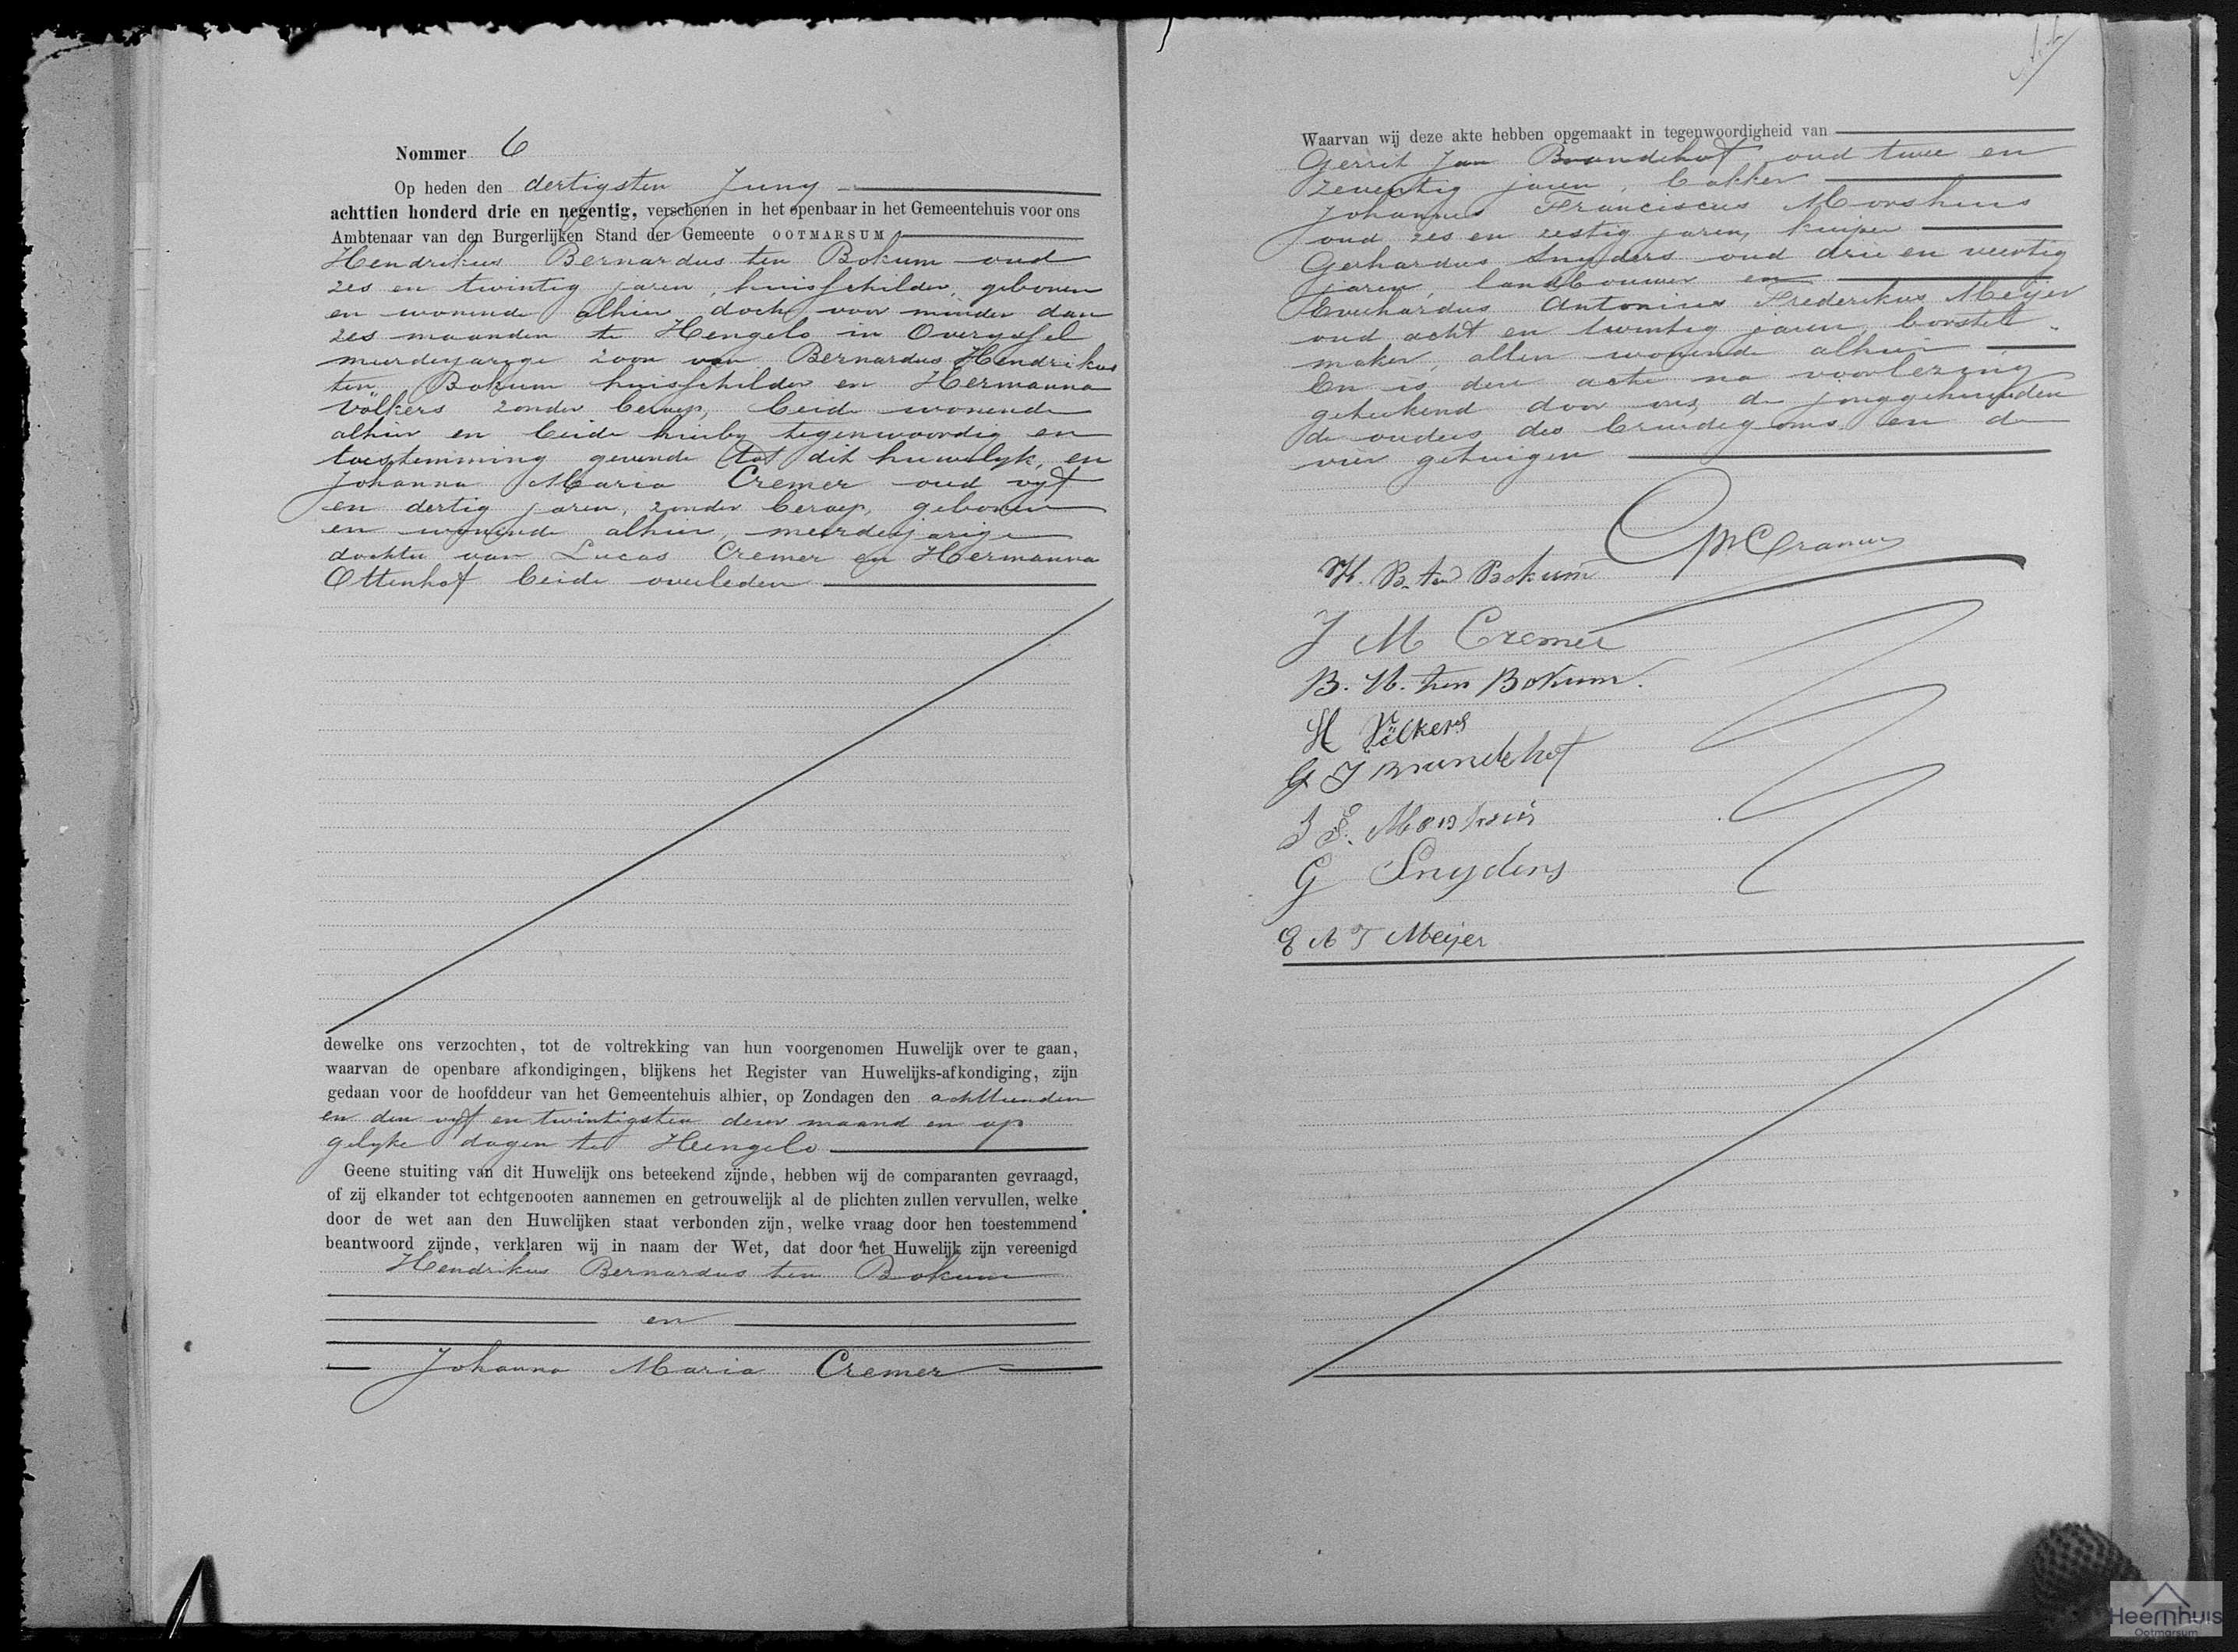 Nommer 6
Op heden den dertigsten Juny
achttien honderd drie en negentig, verschenen in het openbaar in het Gemeentehuis voor ons
Ambtenaar van den Burgerlijken Stand der Gemeente OOTMARSUM
Hendrikus Bernardus ten Bokum oud
zes en twintig jaren, huisschilder, geboren
en wonende alhier doch voor minder dan
zes maanden te Hengelo in Overyssel
meerderjarige zoon van Bernardus Hendrikus
ten Bokum huisschilder en Hermanna
Völkers zonder beroep, beide wonende
alhier en beide hierby tegenwoordig en
toestemming gevende tot dit huwelyk, en
Johanna Maria Cremer oud vyf
en dertig jaren, zonder beroep, geboren
en wonende alhier, meerderjarige
dochter van Lucas Cremer en Hermanna
Ottenhof beide overleden
dewelke ons verzochten, tot de voltrekking van hun voorgenomen Huwelijk over te gaan,
waarvan de openbare afkondigingen, blijkens het Register van Huwelijks-afkondiging, zijn
gedaan voor de hoofddeur van het Gemeentehuis alhier, op Zondagen den achttienden
en den vyf en twintigsten dezer maand en op
gelyke dagen te Hengelo
Geene stuiting van dit Huwelijk ons beteekend zijnde, hebben wij de comparanten gevraagd,
of zij elkander tot echtgenooten aannemen en getrouwelijk al de plichten zullen vervullen, welke
door de wet aan den Huwelijken staat verbonden zijn, welke vraag door hen toestemmend
beantwoord zijnde, verklaren wij in naam der Wet, dat door het Huwelijk zijn vereenigd
Hendrikus Bernardus ten Bokum
en
Johanna Maria Cremer
Waarvan wij deze akte hebben opgemaakt in tegenwoordigheid van
Gerrit Jan Brundehof oud twee en
zeventig jaren, bakker
Johannes Franciscus Morshuis
oud zes en zestig jaren, kuiper
Gerhardus Snyders oud drie en veertig
jaren, landbouwer en
Everhardus Antonius Frederikus Meijer
oud acht en twintig jaren, borstel-
maker, allen wonende alhier
En is deze acte na voorlezing
geteekend door ons, de jonggehuwden
de ouders des bruidegoms en de
vier getuigen
H. B. ten Bokum
J M Cremer
B. H. ten Bokum.
H Völkers
G J Brundehof
J F. Morshuis
G Snyders
E A F Meijer
Heernhuis
Ootmarsum